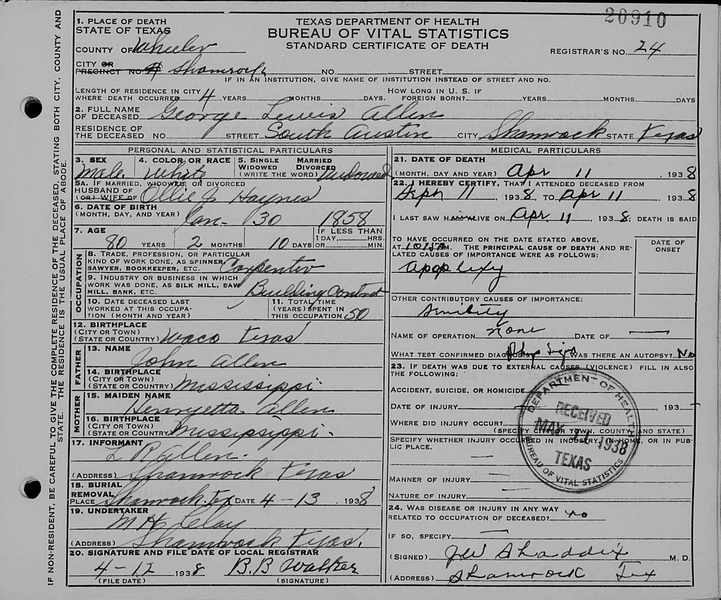 20910
1. PLACE OF DEATH
STATE OF TEXAS
COUNTY OF Wheeler
TEXAS DEPARTMENT OF HEALTH
BUREAU OF VITAL STATISTICS
STANDARD CERTIFICATE OF DEATH
REGISTRAR'S NO. 24
CITY OR
PRECINCT NO. Shamrock NO. STREET
IF IN AN INSTITUTION, GIVE NAME OF INSTITUTION INSTEAD OF STREET AND NO.
LENGTH OF RESIDENCE IN CITY WHERE DEATH OCCURRED 4 YEARS MONTHS DAYS
HOW LONG IN U. S. IF FOREIGN BORN? YEARS MONTHS DAYS
2. FULL NAME OF DECEASED George Lewis Allen
RESIDENCE OF THE DECEASED NO. STREET South Austin CITY Shamrock STATE Texas
PERSONAL AND STATISTICAL PARTICULARS
3. SEX Male
4. COLOR OR RACE White
5. SINGLE MARRIED WIDOWED DIVORCED (WRITE THE WORD) Widowed
5A. IF MARRIED, WIDOWED OR DIVORCED
HUSBAND OF (OR) WIFE OF Ollie J Haynes
6. DATE OF BIRTH (MONTH, DAY, AND YEAR) Jan- 30 1858
7. AGE 80 YEARS 2 MONTHS 10 DAYS
IF LESS THAN 1 DAY, HRS MIN.
OCCUPATION
8. TRADE, PROFESSION, OR PARTICULAR KIND OF WORK DONE, AS SPINNER, SAWYER, BOOKKEEPER, ETC. Carpenter
9. INDUSTRY OR BUSINESS IN WHICH WORK WAS DONE, AS SILK MILL, SAW MILL, BANK, ETC. Building
10. DATE DECEASED LAST WORKED AT THIS OCCUPATION (MONTH AND YEAR)
11. TOTAL TIME (YEARS) SPENT IN THIS OCCUPATION 50
12. BIRTHPLACE (CITY OR TOWN) (STATE OR COUNTRY) Waco Texas
FATHER
13. NAME John Allen
14. BIRTHPLACE (CITY OR TOWN) (STATE OR COUNTRY) Mississippi
MOTHER
15. MAIDEN NAME Henryetta Allen
16. BIRTHPLACE (CITY OR TOWN) (STATE OR COUNTRY) Mississippi
17. INFORMANT Allen
(ADDRESS) Shamrock Texas
18. BURIAL REMOVAL
PLACE Shamrock Tex DATE 4-13 1938
19. UNDERTAKER M H Clay
(ADDRESS) Shamrock Texas.
20. SIGNATURE AND FILE DATE OF LOCAL REGISTRAR
4-12 1938 B.B Walker
(FILE DATE) (SIGNATURE)
MEDICAL PARTICULARS
21. DATE OF DEATH (MONTH, DAY, AND YEAR) Apr 11 1938
22. I HEREBY CERTIFY, THAT I ATTENDED DECEASED FROM
Sept 11 1938, TO Apr 11 1938
I LAST SAW HIM ALIVE ON Apr 11 1938, DEATH IS SAID
TO HAVE OCCURRED ON THE DATE STATED ABOVE,
AT THE PRINCIPAL CAUSE OF DEATH AND RELATED CAUSES OF IMPORTANCE WERE AS FOLLOWS:
DATE OF ONSET
apoplexy
OTHER CONTRIBUTORY CAUSES OF IMPORTANCE:
Senility
NAME OF OPERATION none DATE OF —
WHAT TEST CONFIRMED DIAGNOSIS WAS THERE AN AUTOPSY? No
23. IF DEATH WAS DUE TO EXTERNAL CAUSES (VIOLENCE) FILL IN ALSO THE FOLLOWING:
ACCIDENT, SUICIDE, OR HOMICIDE
DATE OF INJURY 193
WHERE DID INJURY OCCUR?
(SPECIFY CITY, TOWN, COUNTY, AND STATE)
SPECIFY WHETHER INJURY OCCURRED IN INDUSTRY, IN HOME, OR IN PUBLIC PLACE.
MANNER OF INJURY
NATURE OF INJURY
DEPARTMENT OF HEALTH
RECEIVED
MAY 1938
TEXAS
BUREAU OF VITAL STATISTICS
24. WAS DISEASE OR INJURY IN ANY WAY RELATED TO OCCUPATION OF DECEASED? no
IF SO, SPECIFY —
(SIGNED) Shaddix M. D.
(ADDRESS) Shamrock Tex
IF NON-RESIDENT, BE CAREFUL TO GIVE THE COMPLETE RESIDENCE OF THE DECEASED, STATING BOTH CITY, COUNTY AND
STATE. THE RESIDENCE IS THE USUAL PLACE OF ABODE.